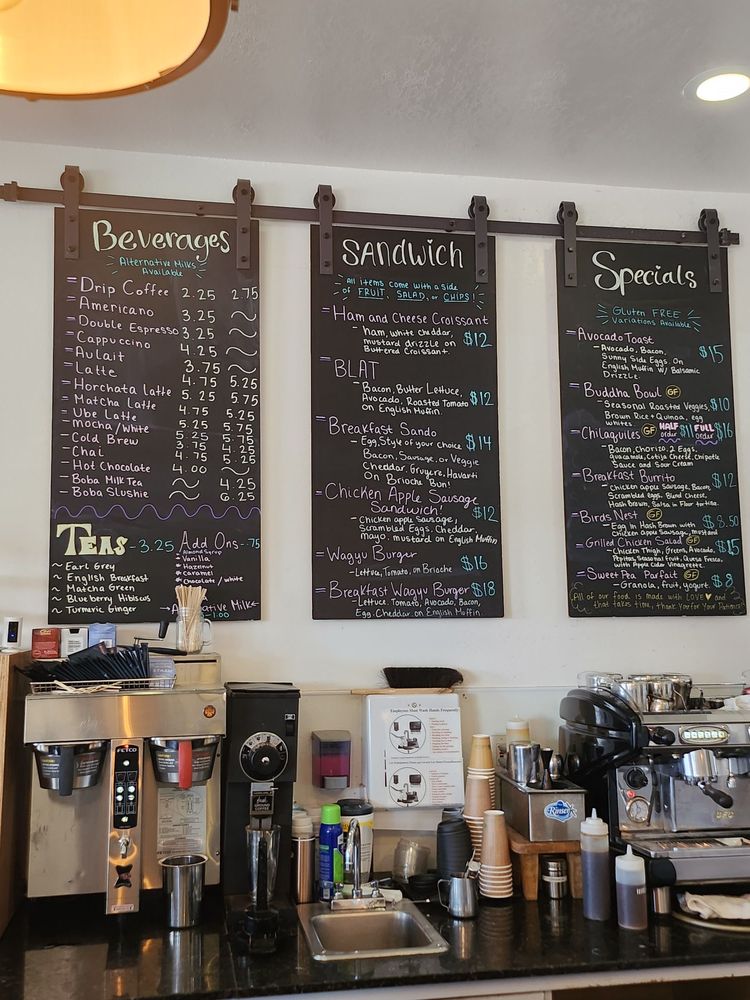 Beverages
Alternative Milks
Available
Drip Coffee 2.25 2.75
Americano 3.25 ~
Double Espresso 3.25 ~
Cappuccino 4.25 ~
Aulait 3.75 ~
Latte 4.75 5.25
Horchata latte 5.25 5.75
Matcha Latte 4.75 5.25
Ube Latte 5.25 5.75
mocha/white
Cold Brew
Chai 4.75 5.25
Hot Chocolate 4.00 ~
Boba Milk Tea ~ 4.25
Boba Slushie ~ 6.25
Teas - 3.25
~ Earl Grey
~ English Breakfast
~ Matcha Green
~ Blueberry Hibiscus
~ Turmeric Ginger
Add Ons - 75
Almond Syrup
Vanilla
Hazelnut
Caramel
Chocolate / white
Milk
1.00
SANDWich
All items come with a side
of FRUIT, SALAD, or CHIPS!
Ham and Cheese Croissant
- ham, white cheddar,
mustard drizzle on
Buttered Croissant. $12
BLAT
- Bacon, Butter Lettuce,
Avocado, Roasted Tomato
on English Muffin. $12
Breakfast Sando
- Egg, Style of your choice $14
Bacon, Sausage, or Veggie
Cheddar, Gruyere, Havarti
On Brioche Bun!
Chicken Apple Sausage
Sandwich!
- Chicken apple Sausage, $12
Scrambled Eggs, Cheddar
Mayo, mustard on English Muffin
Wagyu Burger
- Lettuce, Tomato, on Brioche $16
Breakfast Wagyu Burger $18
- Lettuce, Tomato, Avocado, Bacon,
Egg, Cheddar, on English Muffin
Specials
Gluten FREE
Variations Available
Avocado Toast
- Avocado, Bacon, $15
Sunny Side Eggs. On
English Muffin W/ Balsamic
Drizzle.
Buddha Bowl GF
- Seasonal Roasted Veggies, $10
Brown Rice + Quinoa, egg
whites
Chilaquiles GF HALF order $11 FULL order $16
- Bacon, Chorizo, 2 Eggs,
guacamole, Cotija Cheese, Chipotle
Sauce and Sour Cream
Breakfast Burrito
- Chicken apple Sausage, Bacon, $12
Scrambled eggs, Blend Cheese,
Hash Brown, Salsa in Flour tortilla.
Birds Nest GF
- Egg in Hash Brown with $8.50
chicken apple Sausage, Mustard
Grilled Chicken Salad GF
- Chicken Thigh, Greens, Avocado, $15
Pepitas, Seasonal fruit, Queso Fresco,
with Apple Cider Vinagrette
Sweet Pea Parfait GF
- Granola, fruit, yogurt. $8
All of our food is made with LOVE and
that takes time, thank You for Your Patience!
FETCO
Employees Must Wash Hands Frequently
fresh
GROUND
COFFEE
Rinser